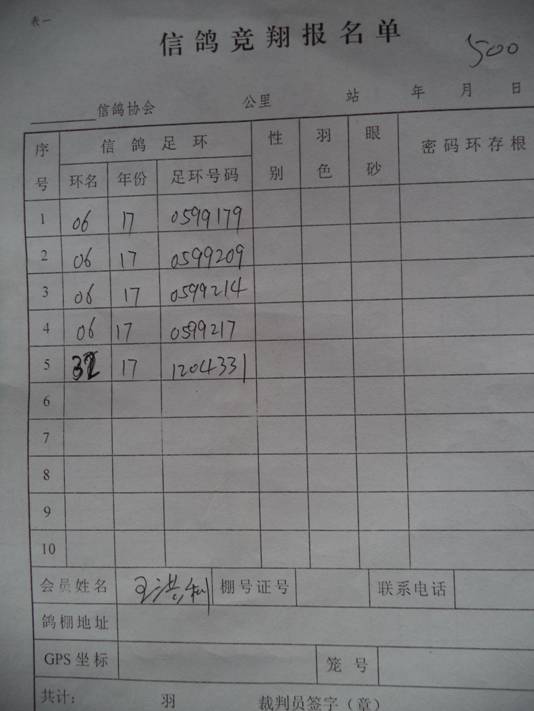 表一
信鸽竞翔报名单
500
信鸽协会 公里 站 年 月 日
序号 信鸽足环 性别 羽色 眼砂 密码环存根
环名 年份 足环号码
1 06 17 0599179
2 06 17 0599209
3 06 17 0599214
4 06 17 0599217
5 32 17 1204331
6
7
8
9
10
会员姓名 王洪利 棚号证号 联系电话
鸽棚地址
GPS坐标 笼号
共计: 羽 裁判员签字（章）